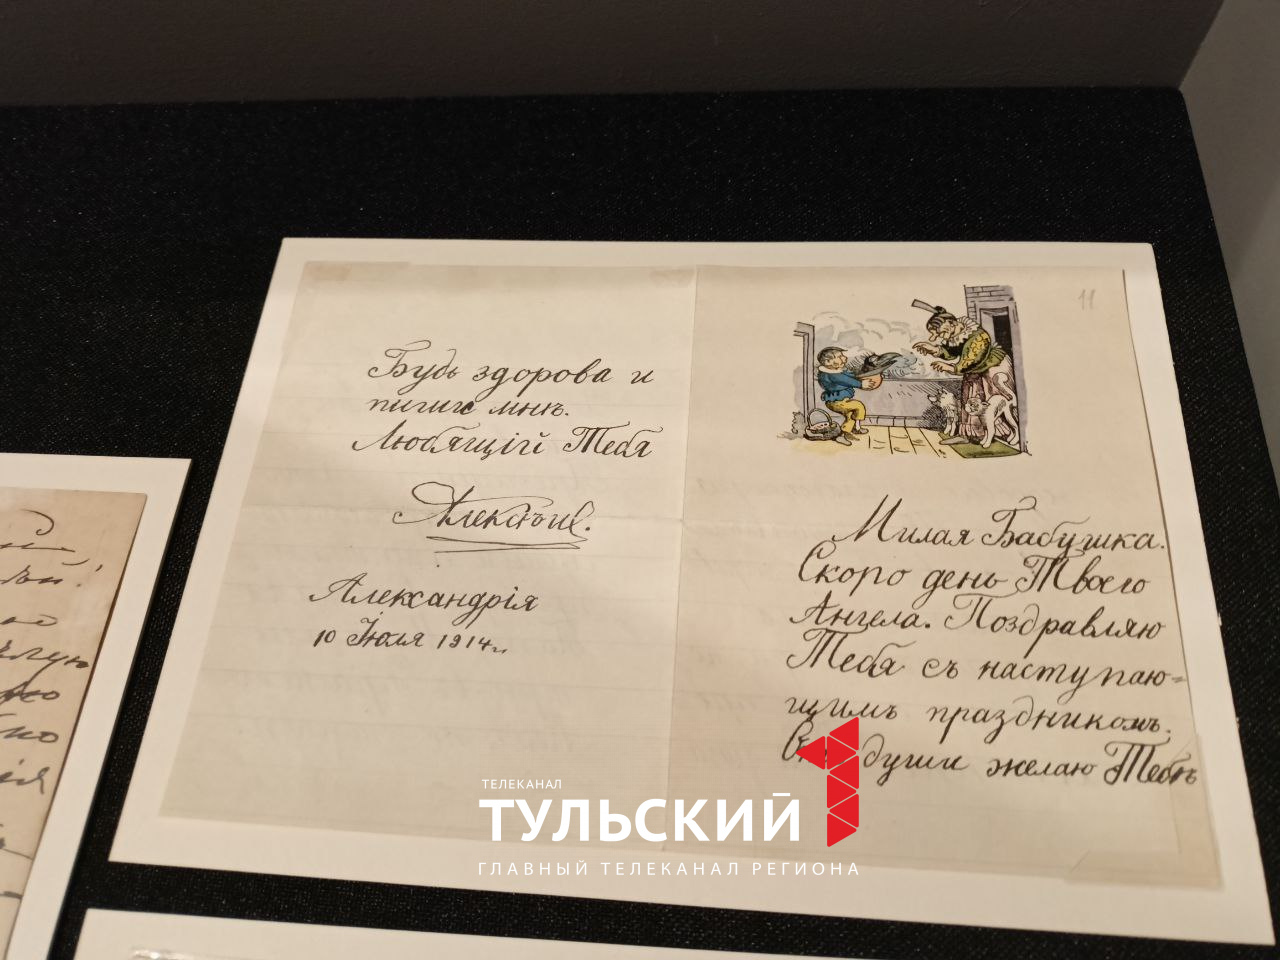 Будь здорова и
пиши мнѣ.
Любящій Тебя
Алексѣй.
Александрія
10 Іюля 1914 г.
11
Милая Бабушка.
Скоро день Твоего
Ангела. Поздравляю
Тебя съ наступаю-
щимъ праздникомъ.
души желаю Тебѣ
ТЕЛЕКАНАЛ
ТУЛЬСКИЙ 1
ГЛАВНЫЙ ТЕЛЕКАНАЛ РЕГИОНА